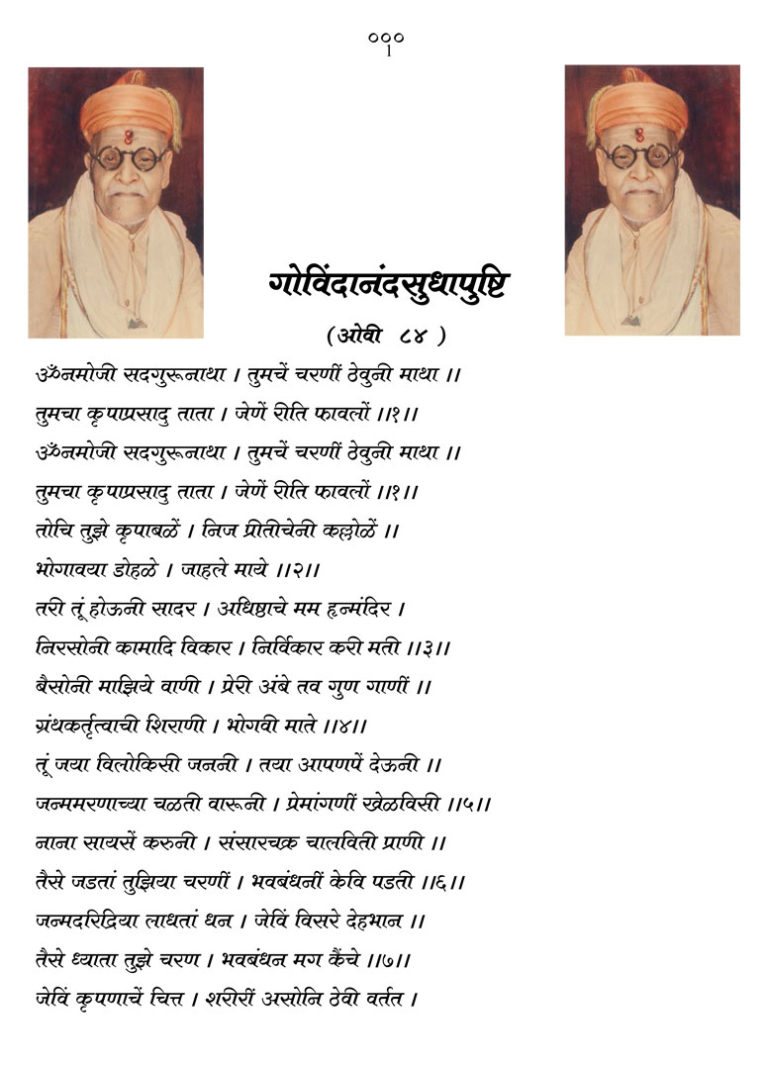 ०००
1
गोविंदानंदसुधापुष्टि
(ओवी ८४ )
ॐनमोजी सदगुरूनाथा । तुमचें चरणीं ठेवुनी माथा ।।
तुमचा कृपाप्रसादु ताता । जेणें रीति फावलों ।।१।।
ॐनमोजी सदगुरूनाथा । तुमचें चरणीं ठेवुनी माथा ।।
तुमचा कृपाप्रसादु ताता । जेणें रीति फावलों ।।१।।
तोचि तुझे कृपाबळें । निज प्रीतीचेनी कल्लोळें ।।
भोगावया डोहळे । जाहले माये ।।२।।
तरी तूं होऊनी सादर । अधिष्ठाचे मम हृन्मंदिर ।
निरसोनी कामादि विकार । निर्विकार करी मती ।।३।।
बैसोनी माझिये वाणी । प्रेरी अंबे तव गुण गाणीं ।।
ग्रंथकर्तृत्वाची शिराणी । भोगवी माते ।।४।।
तूं जया विलोकिसी जननी । तया आपणपें देऊनी ।।
जन्ममरणाच्या चळती वारूनी । प्रेमांगणीं खेळविसी ।।५।।
नाना सायसें करुनी । संसारचक्र चालविती प्राणी ।।
तैसे जडतां तुझिया चरणीं । भवबंधनीं केवि पडती ।।६।।
जन्मदरिद्रिया लाधतां धन । जेविं विसरे देहभान ।।
तैसे ध्याता तुझे चरण । भवबंधन मग कैंचे ।।७।।
जेविं कृपणाचें चित्त । शरीरीं असोनि ठेवी वर्तत ।